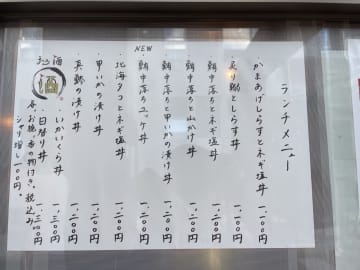 ランチメニュー
・かまあげしらすとネギ塩丼 一、一〇〇円
・炙り鯵としらす丼 一、二〇〇円
・鮪中落ちとネギ塩丼 一、二〇〇円
・鮪中落ちと山かけ丼 一、二〇〇円
・鮪中落ちと甲いかの漬け丼 一、二〇〇円
NEW
・鮪中落ちユッケ丼 一、二〇〇円
・北海タコとネギ塩丼 一、二〇〇円
・甲いかの漬け丼 一、二〇〇円
・真鯵の漬け丼 一、二〇〇円
・いかいくら丼 一、三〇〇円
・日替り丼 一、三〇〇円
各、お椀・香の物付き、税込み。
シャリ増し一〇〇円
地酒